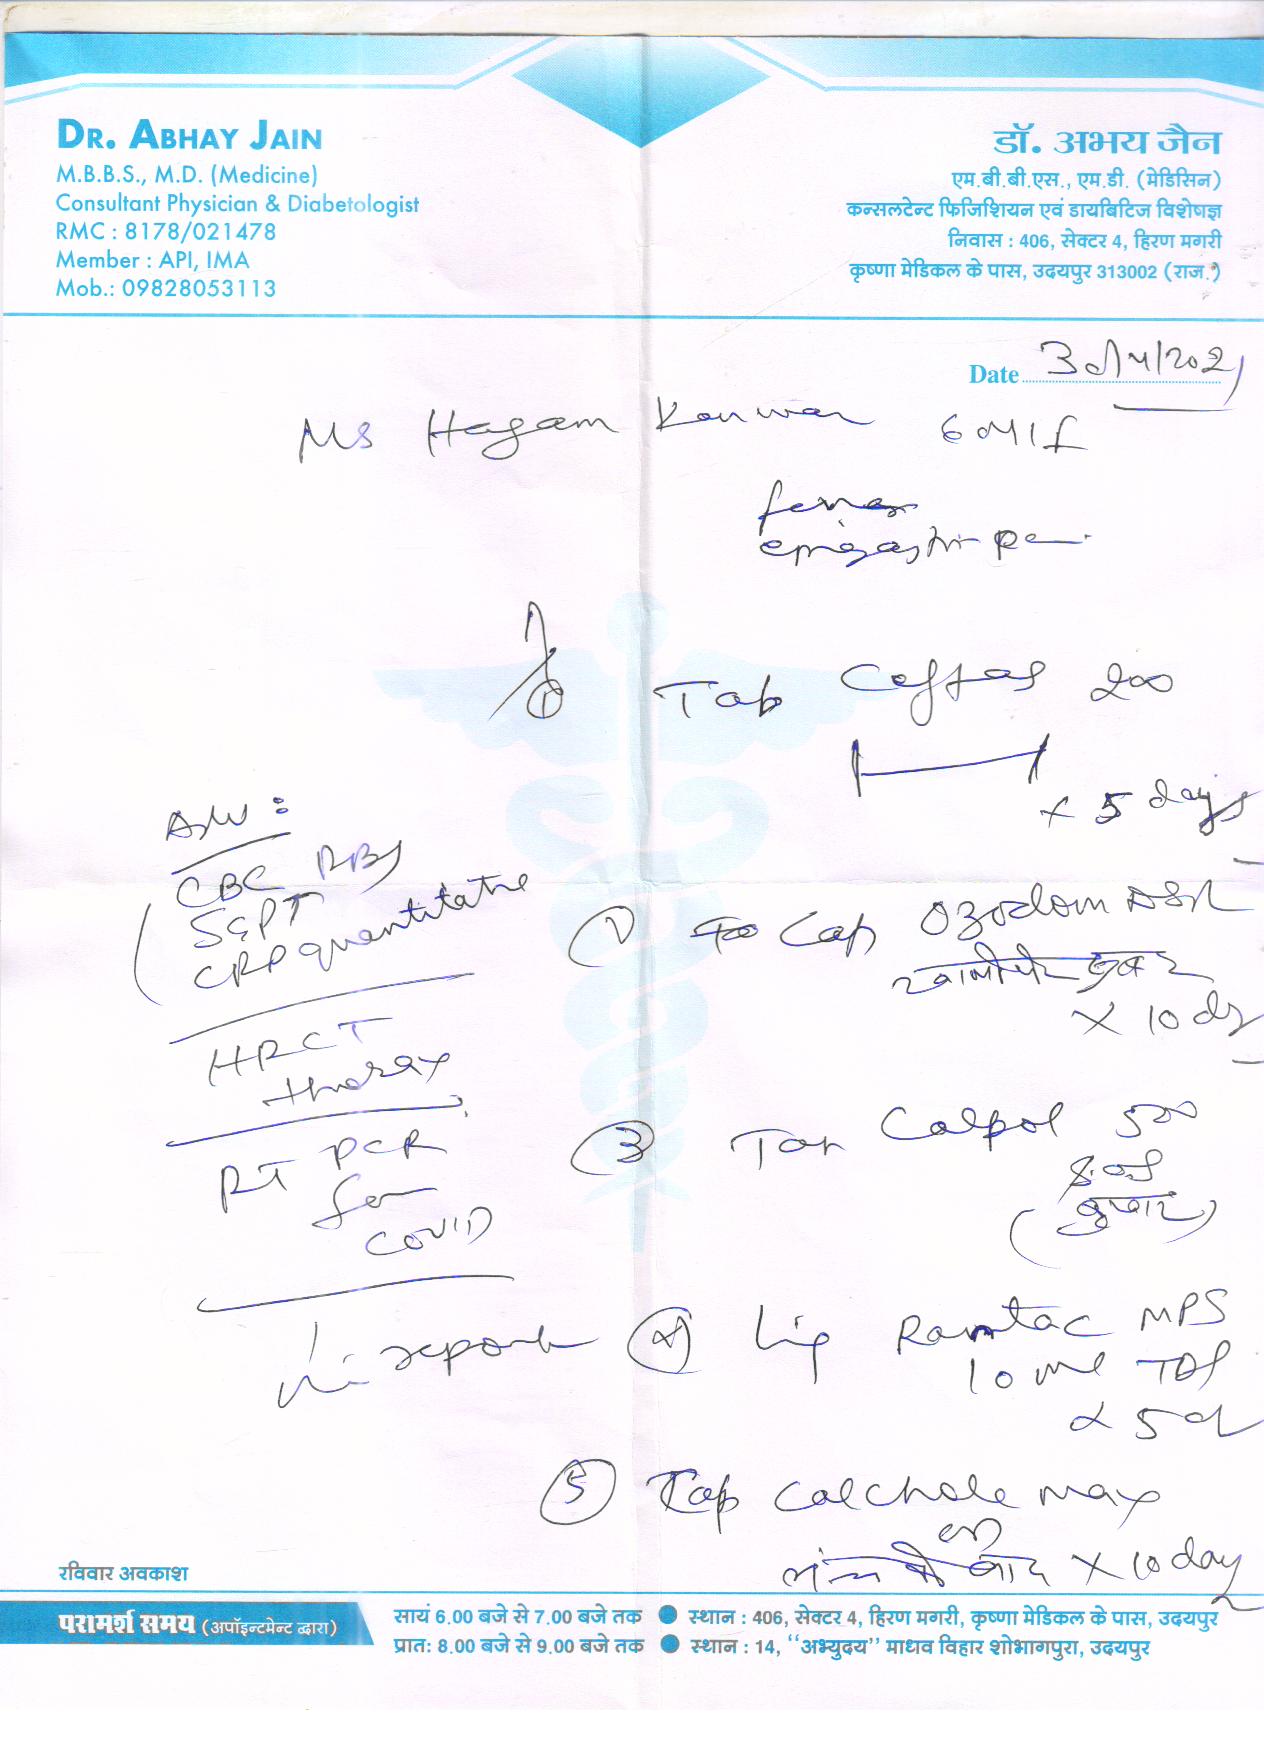 DR. ABHAY JAIN
M.B.B.S., M.D. (Medicine)
Consultant Physician & Diabetologist
RMC : 8178/021478
Member : API, IMA
Mob.: 09828053113
डॉ. अभय जैन
एम.बी.बी.एस., एम.डी. (मेडिसिन)
कन्सलटेन्ट फिजिशियन एवं डायबिटिज विशेषज्ञ
निवास : 406, सेक्टर 4, हिरण मगरी
कृष्णा मेडिकल के पास, उदयपुर 313002 (राज.)
Date 30/4/2021
Ms Hagam Kanwar
fever
epigastri pain
① Tab Ceftas 200
x 5 days
Adv :
CBC RBS
SGPT
CRP quantitative
HRCT
thorax
RT PCR
for
COVID
report
Cap Ozodom DSR
खाली पेट
x 10 day
③ Tab Calpol 500
(बुखार)
④ Liq Rantac MPS
10 ml TDS
x 5 d
⑤ Tab Calchole max
के बाद x 10 day
रविवार अवकाश
परामर्श समय (अपॉइन्टमेन्ट द्वारा)
सायं 6.00 बजे से 7.00 बजे तक ● स्थान : 406, सेक्टर 4, हिरण मगरी, कृष्णा मेडिकल के पास, उदयपुर
प्रातः 8.00 बजे से 9.00 बजे तक ● स्थान : 14, ‘‘अभ्युदय’’ माधव विहार शोभागपुरा, उदयपुर